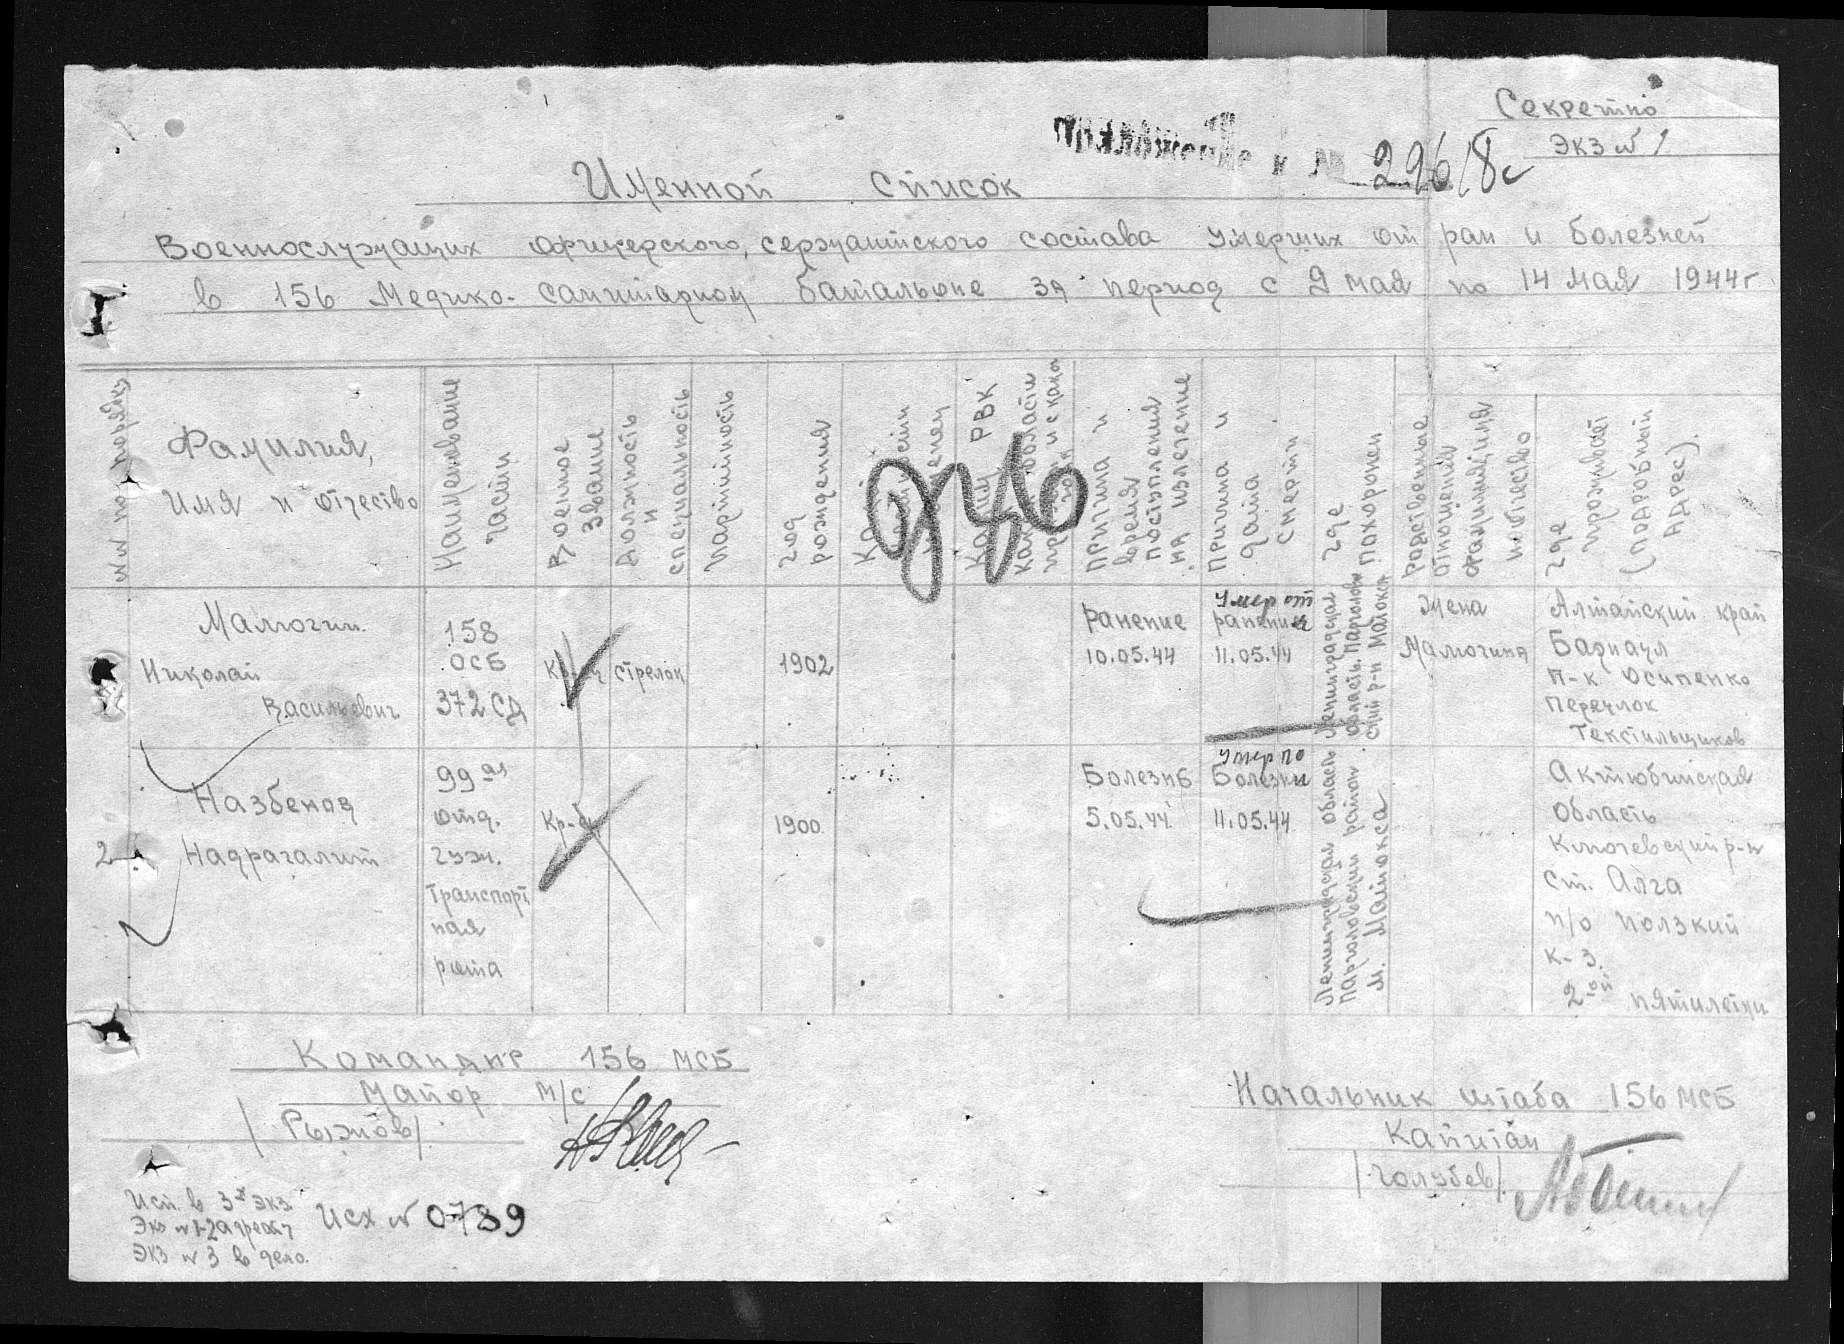 Секретно
Экз № 1
Приложение к № 29618с
Именной список
Военнослужащих офицерского, сержантского состава умерших от ран и болезней
в 156 Медико-санитарном батальоне за период с 9 мая по 14 мая 1944г
№№ по порядку
Фамилия,
Имя и отчество
Наименование
части
Военное
звание
Должность
и
специальность
Партийность
Год
рождения
Какой
РВК
Причина и
время
поступления
на излечение
Причина и
дата
смерти
Где
похоронен
Родственные
отношения
фамилия имя
и отчество
Где
проживает
(подробный
адрес).
Малюгин
Николай
Васильевич
158
ОСБ
372 СД
Кр-ц
стрелок
1902
Ранение
10.05.44
Умер от
ранения
11.05.44
Ленинградская
область Парголов
ский р-н
Жена
Малюгина
Алтайский край
Барнаул
п-к Осипенко
Переулок
Текстильщиков
2
Назбенов
Надрагалит
99 ая
отд.
гуж.
транспорт
ная
рота
Кр-ц
1900
Болезнь
5.05.44
Умер по
Болезни
11.05.44
Ленинградская область
Парголовский район
м. Майнокса
Актюбинская
область
Ключевский р-н
ст. Алга
п/о Ползкий
к-з
2-ой пятилетки
Командир 156 МСБ
Майор м/с
/Рыжов/
Начальник штаба 156 МСБ
Капитан
/Голубев/
Исп. в 3х экз.
Экз № 1-2 адресат
Экз № 3 в дело.
Исх № 0739